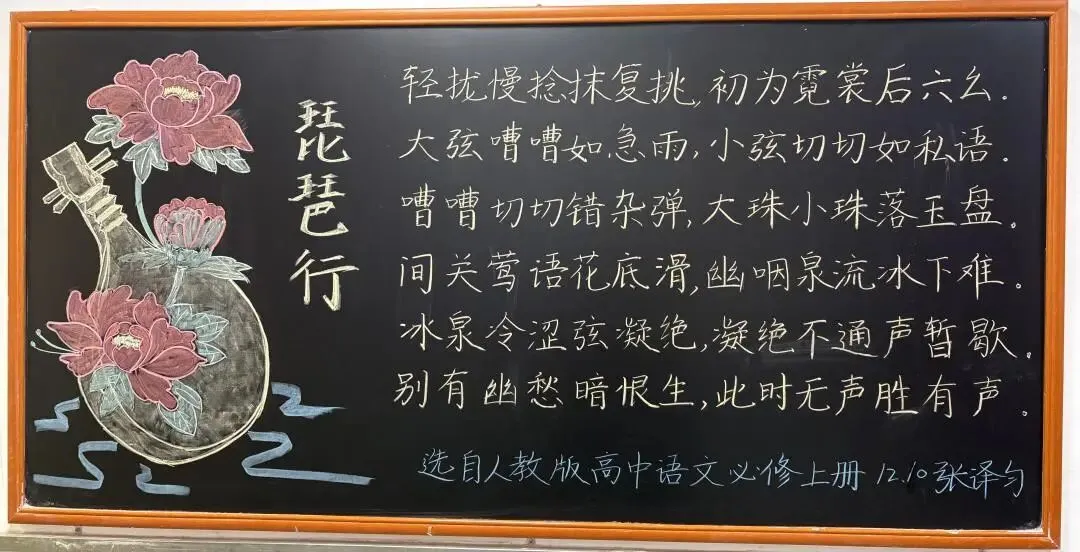 琵琶行
轻扰慢捻抹复挑,初为霓裳后六幺.
大弦嘈嘈如急雨,小弦切切如私语.
嘈嘈切切错杂弹,大珠小珠落玉盘.
间关莺语花底滑,幽咽泉流冰下难.
冰泉冷涩弦凝绝,凝绝不通声暂歇.
别有幽愁暗恨生,此时无声胜有声.
选自人教版高中语文必修上册 12.10 张译匀